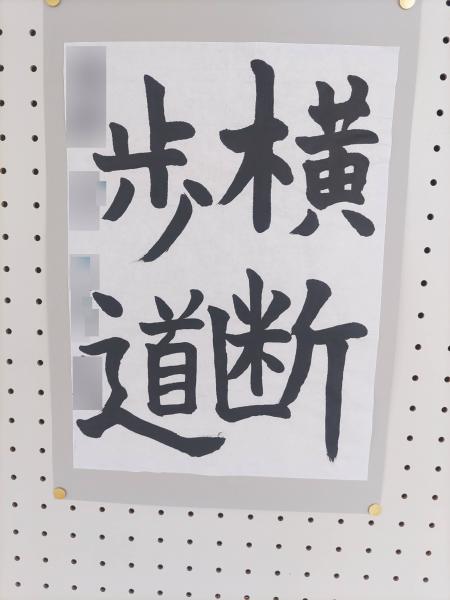 横断
歩道